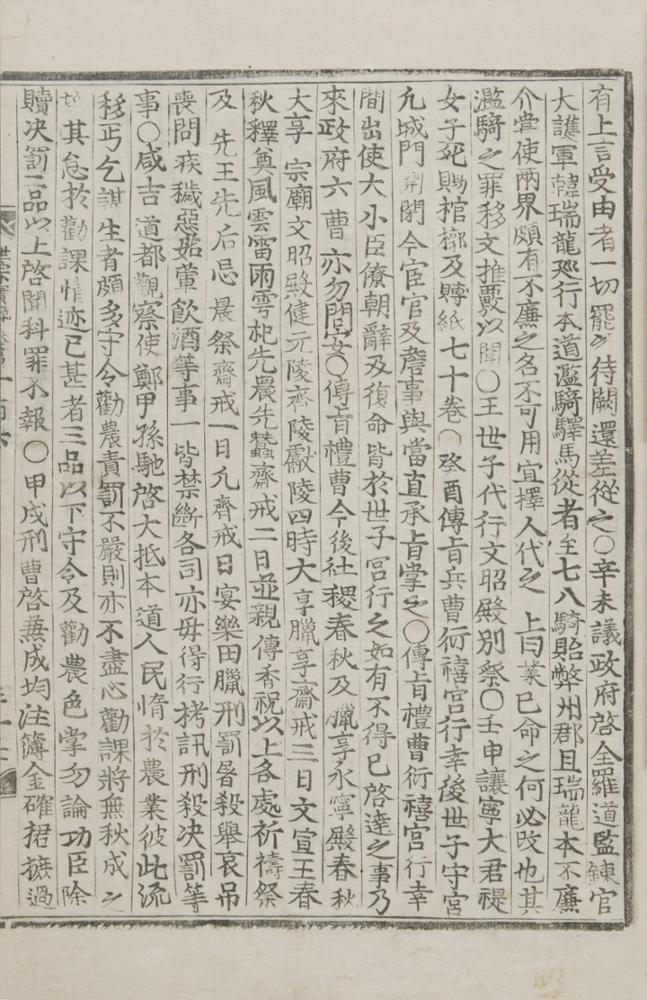 有上言受由者一切罷之待闕還差從之○辛未議政府啓全羅道監鍊官
大護軍韓瑞龍巡行本道濫騎驛馬從者至七八騎貽弊州郡且瑞龍本不廉
介嘗使兩界頗有不廉之名不可用宜擇人代之 上曰業已命之何必改也其
濫騎之罪移文推覈以聞○王世子代行文昭殿別祭○壬申讓寧大君禔
女子死賜棺槨及賻紙七十卷○癸酉傳旨兵曹衍禧宮行幸後世子守宮
凡城門開閉令宦官及詹事與當直承旨掌之○傳旨禮曹衍禧宮行幸
間出使大小臣僚朝辭及復命皆於世子宮行之如有不得已啓達之事乃
來政府六曹亦勿問安○傳旨禮曹今後社稷春秋及臘享永寧殿春秋
大享 宗廟文昭殿健元陵齊陵獻陵四時大享臘享齋戒三日文宣王春
秋釋奠風雲雷雨雩祀先農先蠶齋戒二日並親傳香祝以上各處祈禱祭
及 先王先后忌晨祭齋戒一日凡齊戒日宴樂田臘刑罰屠殺舉哀吊
喪問疾穢惡姤葷飮酒等事一皆禁斷各司亦毋得行拷訊刑殺决罰等
事○咸吉道都觀察使鄭甲孫馳啓大抵本道人民惰於農業彼此流
移丐乞謀生者頗多守令勸農責罰不嚴則亦不盡心勸課將無秋成之
其怠於勸課情迹已甚者三品以下守令及勸農色掌勿論功臣除
贖决罰二品以上啓聞科罪不報○甲戌刑曹啓兼成均注簿金確捃摭過